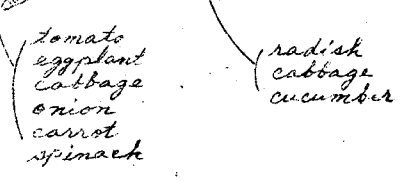 tomato
eggplant
cabbage
onion
carrot
spinach
radish
cabbage
cucumber